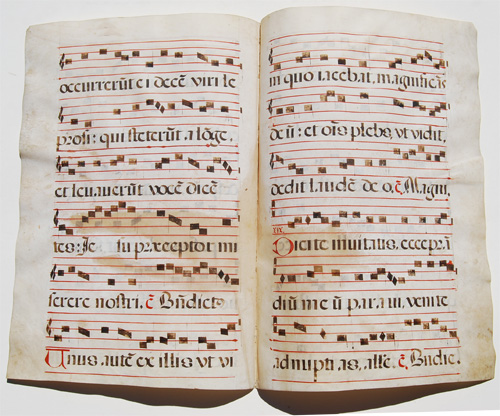 occurrerūt ei decē viri le
prosi: qui steterūt a lōge,
et levaverūt vocē dicē
tes: Je su præceptor mi
serere nostri. c̄ Bn̄dicto
Unus autē ex illis ut vi
in quo iacebat, magnificās
deū: et oīs plebs, ut vidit,
dedit laudē deo. c̄ Magni,
Dicite invitatis, ecce prā
diū meū paravi, venite
ad nuptias, allē. c̄ Bndic.